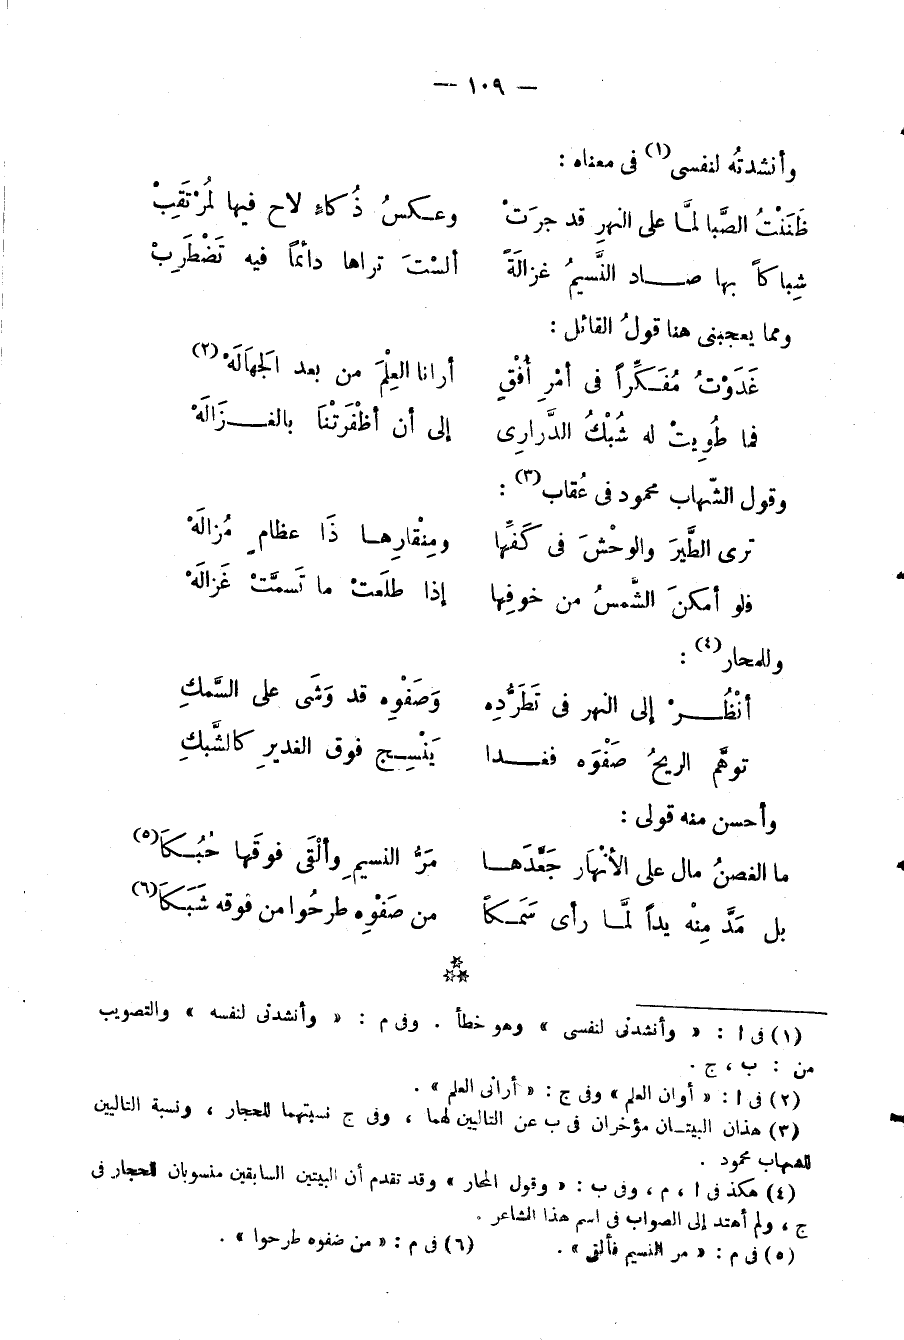 — ١٠٩ —
وأنشدتُه لنفسى(١) فى معناه :
ظَنَنْتُ الصَّبا لمَّا على النهرِ قد جرَتْ وعـكسُ ذُكاءٍ لاح فيها لمُرْتَقِبْ
شِباكاً بها صـــاد النَّسيمُ غزالَةً ألسْتَ تراها دائماً فيه تَضْطَرِبْ
ومما يعجبنى هنا قولُ القائل :
غَدَوْتُ مُفَـكِّراً فى أمْرِ أُفْقٍ أرانا العِلْمَ من بعد الَجهَالَهْ(٢)
فما طُوِيتْ له شُبْكُ الدَّرارِى إلى أن أظْفَرَتْنَا بالغـــزَالَهْ
وقول الشّهاب محمود فى عُقاب(٣) :
ترى الطَّيرَ والوحْشَ فى كَفِّها ومِنْقارِهـا ذَا عظامٍ مُزالَهْ
فلو أمكنَ الشَّمسُ من خوفِها إذا طلَعتْ ما تَسمَّتْ غَزالَهْ
وللمحار(٤) :
أنْظُـــرْ إلى النهر فى تَطَرُّدِه وَصَفْوِه قد وَشَى على السَّمكِ
توهَّم الريحُ صَفْوَه فغـــدا يَنْسِـج فوق الغديرِ كالشَّبكِ
وأحسن منه قولى :
ما الغصنُ مال على الأنْهارِ جَعَّدَهـا مَرُّ النسيمِ وألْقَى فوقَها حُبُـكَا(٥)
بل مَدَّ مِنْه يداً لَمَّـا رأى سَمَـكاً من صَفْوِه طرحُوا من فوقه شَبَـكَا(٦)
(١) فى ا : « وأنشدنى لنفسى » وهو خطأ . وفى م : « وأنشدنى لنفسه » والتصويب
من : ب ، ج .
(٢) فى ا : « أوان العلم » وفى ج : « أرانى العلم » .
(٣) هذان البيتـان مؤخران فى ب عن التاليين لهما ، وفى ج نسبتهما للحجار ، ونسبة التاليين
للشهاب محمود .
(٤) هكذ فى ا ، م ، وفى ب : « وقول المحار » وقد تقدم أن البيتين السابقين منسوبان للحجار فى
ج ، ولم أهتد إلى الصواب فى اسم هذا الشاعر .
(٥) فى م : « مر النسيم فألقى » . (٦) فى م : « من ضفوه طرحوا » .